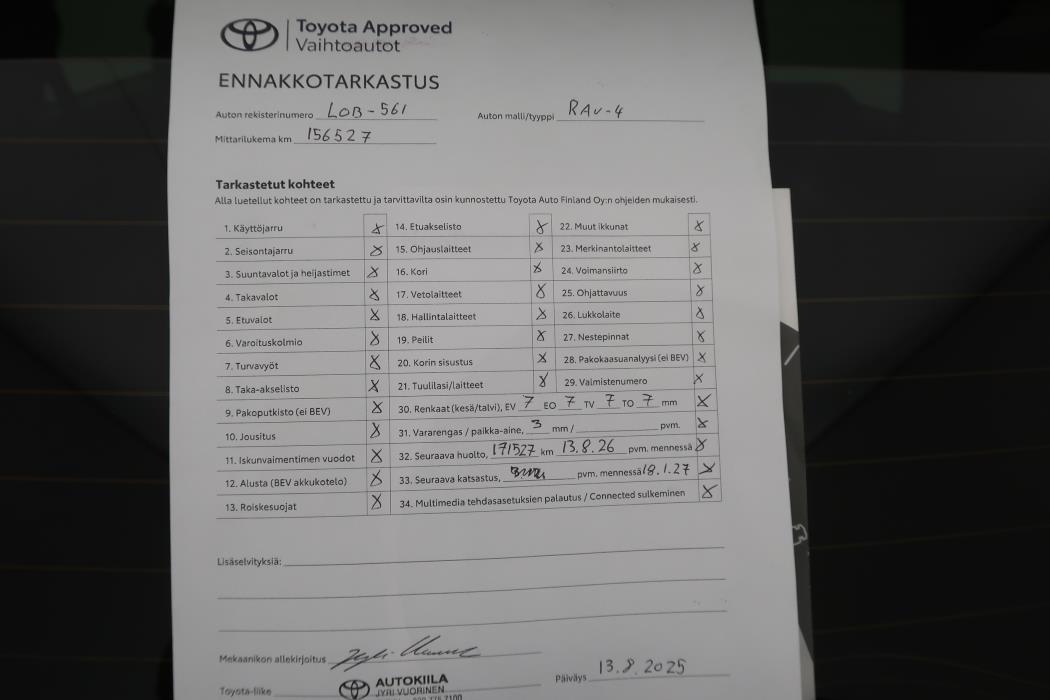 Toyota Approved
Vaihtoautot
ENNAKKOTARKASTUS
Auton rekisterinumero LOB-561
Auton malli/tyyppi RAV-4
Mittarilukema km 156527
Tarkastetut kohteet
Alla luetellut kohteet on tarkastettu ja tarvittavilta osin kunnostettu Toyota Auto Finland Oy:n ohjeiden mukaisesti.
1. Käyttöjarru X
2. Seisontajarru X
3. Suuntavalot ja heijastimet X
4. Takavalot X
5. Etuvalot X
6. Varoituskolmio X
7. Turvavyöt X
8. Taka-akselisto X
9. Pakoputkisto (ei BEV) X
10. Jousitus X
11. Iskunvaimentimen vuodot X
12. Alusta (BEV akkukotelo) X
13. Roiskesuojat X
14. Etuakselisto X
15. Ohjauslaitteet X
16. Kori X
17. Vetolaitteet X
18. Hallintalaitteet X
19. Peilit X
20. Korin sisustus X
21. Tuulilasi/laitteet X
22. Muut ikkunat X
23. Merkinantolaitteet X
24. Voimansiirto X
25. Ohjattavuus X
26. Lukkolaite X
27. Nestepinnat X
28. Pakokaasuanalyysi (ei BEV) X
29. Valmistenumero X
30. Renkaat (kesä/talvi), EV 7 EO 7 TV 7 TO 7 mm X
31. Vararengas / paikka-aine, 3 mm / pvm. X
32. Seuraava huolto, 171527 km 13.8.26 pvm. mennessä X
33. Seuraava katsastus, pvm. mennessä 18.1.27 X
34. Multimedia tehdasasetuksien palautus / Connected sulkeminen X
Lisäselvityksiä:
Mekaanikon allekirjoitus
Päiväys 13.8.2025
Toyota-liike AUTOKIILA
JYRI VUORINEN